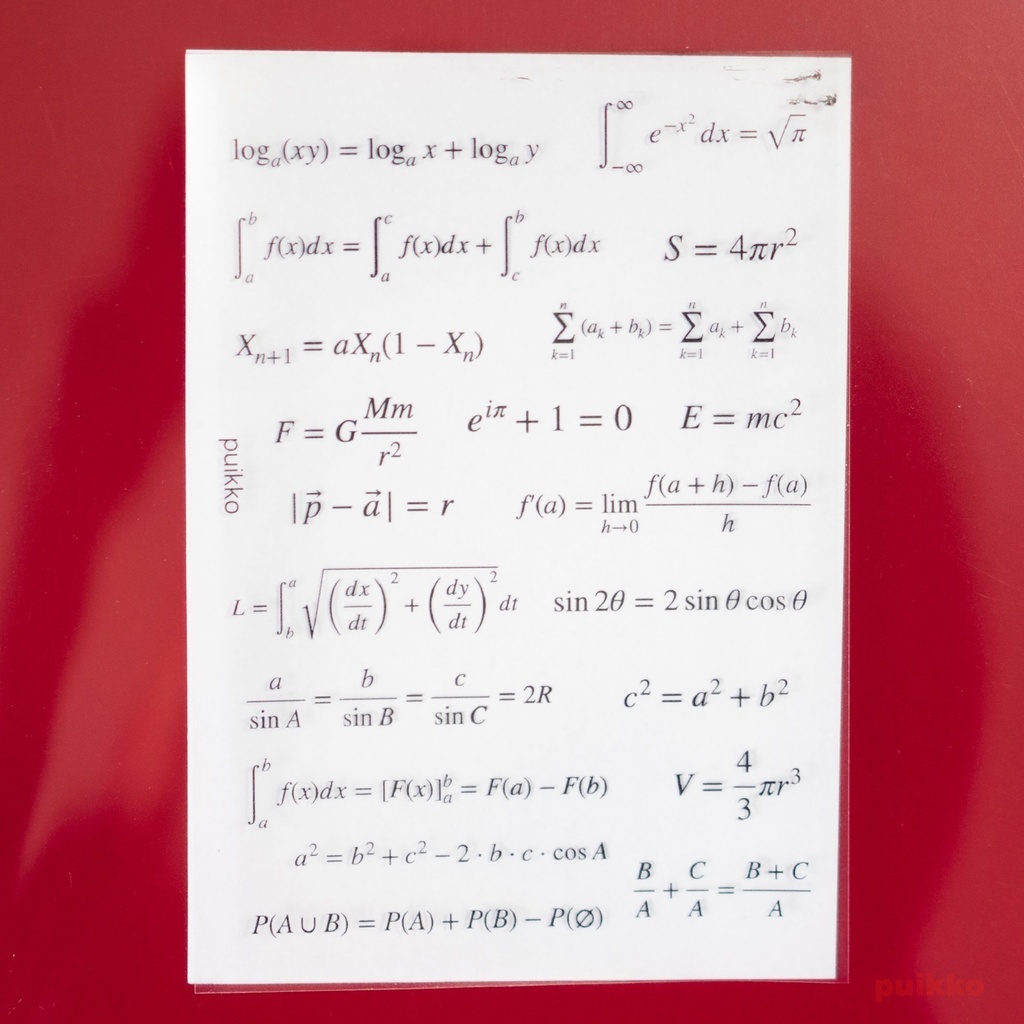 logₐ(xy) = logₐ x + logₐ y
∫_{-∞}^{∞} e^{-x²} dx = √π
∫_a^b f(x)dx = ∫_a^c f(x)dx + ∫_c^b f(x)dx
S = 4πr²
X_{n+1} = aX_n(1 − X_n)
∑_{k=1}^{n} (a_k + b_k) = ∑_{k=1}^{n} a_k + ∑_{k=1}^{n} b_k
F = G Mm/r²
e^{iπ} + 1 = 0
E = mc²
puikko
|p⃗ − a⃗| = r
f′(a) = lim_{h→0} (f(a + h) − f(a))/h
L = ∫_b^a √((dx/dt)² + (dy/dt)²) dt
sin 2θ = 2 sin θ cos θ
a/sin A = b/sin B = c/sin C = 2R
c² = a² + b²
∫_a^b f(x)dx = [F(x)]_a^b = F(a) − F(b)
V = 4/3 πr³
a² = b² + c² − 2 · b · c · cos A
B/A + C/A = (B + C)/A
P(A ∪ B) = P(A) + P(B) − P(∅)
puikko